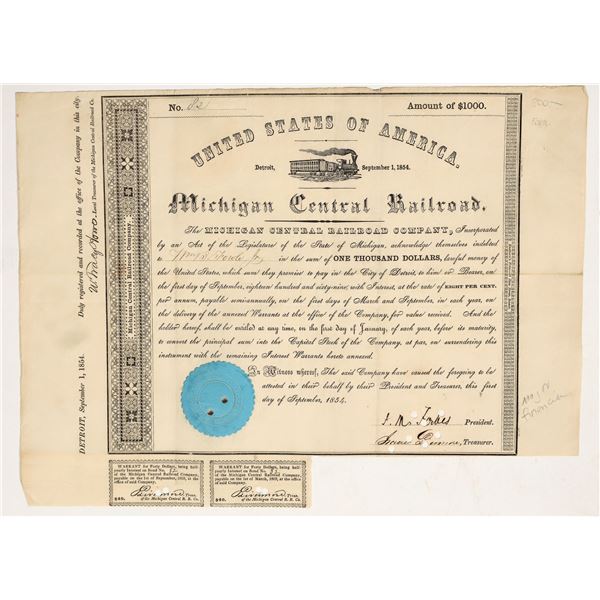 No. 82
Amount of $1000.
UNITED STATES OF AMERICA.
Detroit, September 1, 1854.
Michigan Central Railroad.
The MICHIGAN CENTRAL RAILROAD COMPANY, Incorporated
by an Act of the Legislature of the State of Michigan, acknowledge themselves indebted
to in the sum of ONE THOUSAND DOLLARS, lawful money of
the United States, which sum they promise to pay in the City of Detroit, to him or Bearer, on the
first day of September, eighteen hundred and sixty-nine, with Interest, at the rate of EIGHT PER CENT.
per annum, payable semi-annually, on the first days of March and September, in each year, on
the delivery of the annexed Warrants at the office of the Company, for value received. And the
holder hereof, shall be entitled at any time, on the first day of January, of each year, before its maturity,
to convert the principal sum into the Capital Stock of the Company, at par, on surrendering this
instrument with the remaining Interest Warrants hereto annexed.
In Witness whereof, The said Company have caused the foregoing to be
attested in their behalf by their President and Treasurer, this first
day of September, 1854.
J. M. Forbes President.
Treasurer.
Michigan Central Railroad Company.
DETROIT, September 1, 1854. Duly registered and recorded at the office of the Company in this city.
Local Treasurer of the Michigan Central Railroad Co.
WARRANT for Forty Dollars, being half
yearly Interest on Bond No. 82
of the Michigan Central Railroad Company,
payable on the 1st of September, 1869, at the
office of said Company.
$40. Livermore Treas.
of the Michigan Central R. R. Co.
WARRANT for Forty Dollars, being half
yearly Interest on Bond No. 82
of the Michigan Central Railroad Company,
payable on the 1st of March, 1869, at the
office of said Company.
$40. Livermore Treas.
of the Michigan Central R. R. Co.